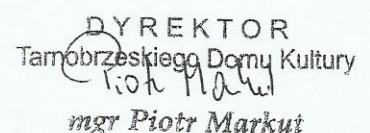 DYREKTOR
Tarnobrzeskiego Domu Kultury
Piotr Markut
mgr Piotr Markut